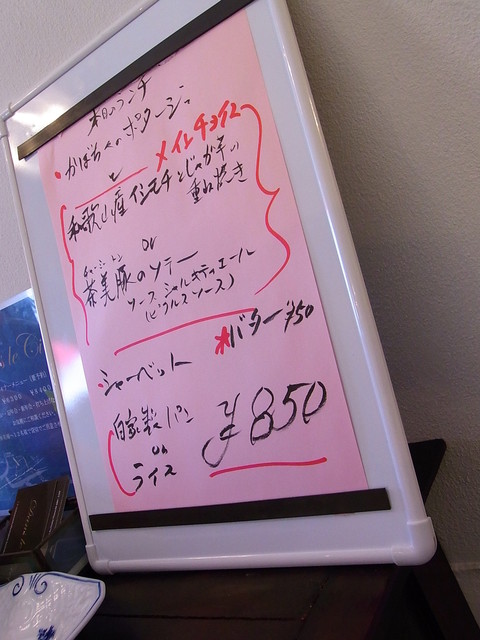 本日のランチ
・かぼちゃのポタージュ
メインチョイス
和歌山産イシモチとじゃが芋の
重ね焼き
or
チャーミートン
茶美豚のソテー
ソースシャルキティエール
(ピクルスソース)
・シャーベット
*バター¥50
自家製パン
or
ライス
¥850